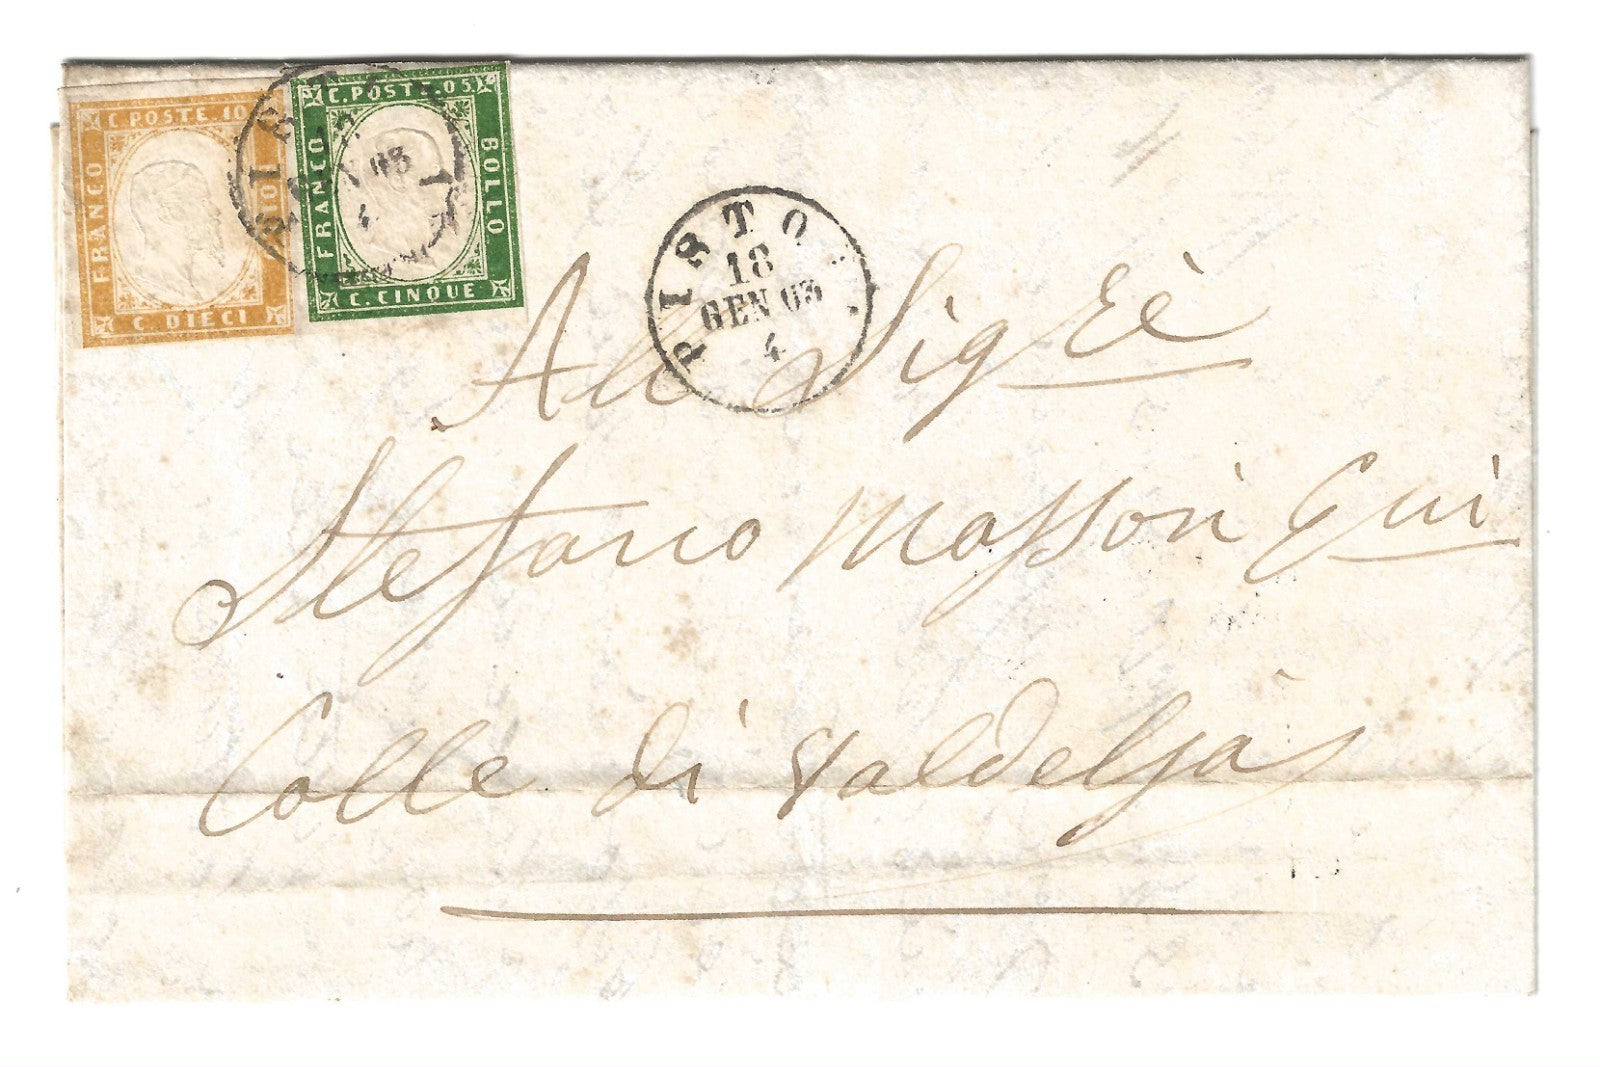 C. POSTE. 10
FRANCO
BOLLO
C. DIECI
C. POSTE. 05
FRANCO
BOLLO
C. CINQUE
PISTO
18
GEN 63
4
All Sig È
Stefano Massoni
Colle di Valdelsa